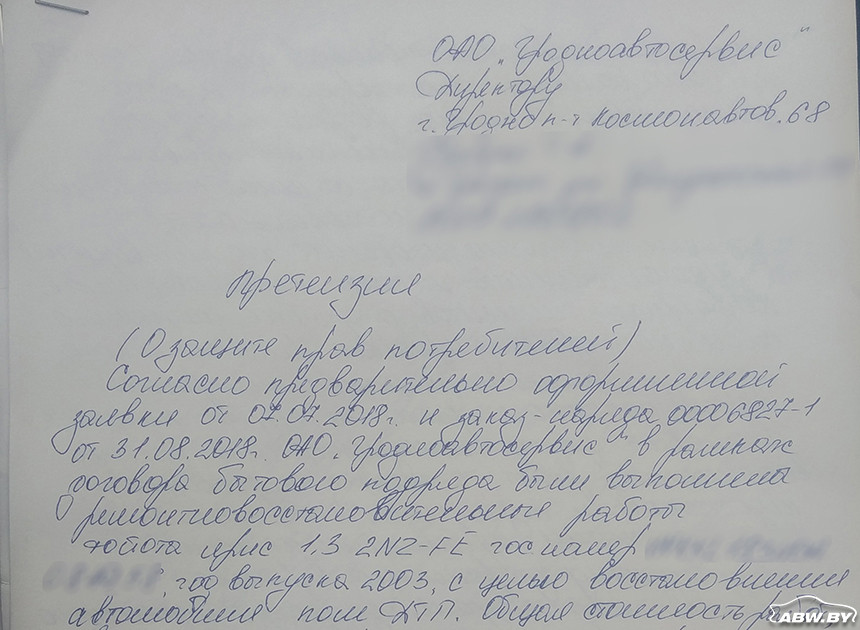 ОАО „Гродноавтосервис"
Директору
г. Гродно п-т Космонавтов. 68
претензия
(О защите прав потребителей)
Согласно предварительно оформленной
заявки от 07.07.2018г. и заказ-наряда 00006827-1
от 31.08.2018г. ОАО „Гродноавтосервис" в рамках
договора бытового подряда были выполнена
ремонтновосстановительные работы
тойота ярис 1,3 2NZ-FE гос номер
год выпуска 2003, с целью восстановления
автомобиля после ДТП. Общая стоимость
ABW.BY